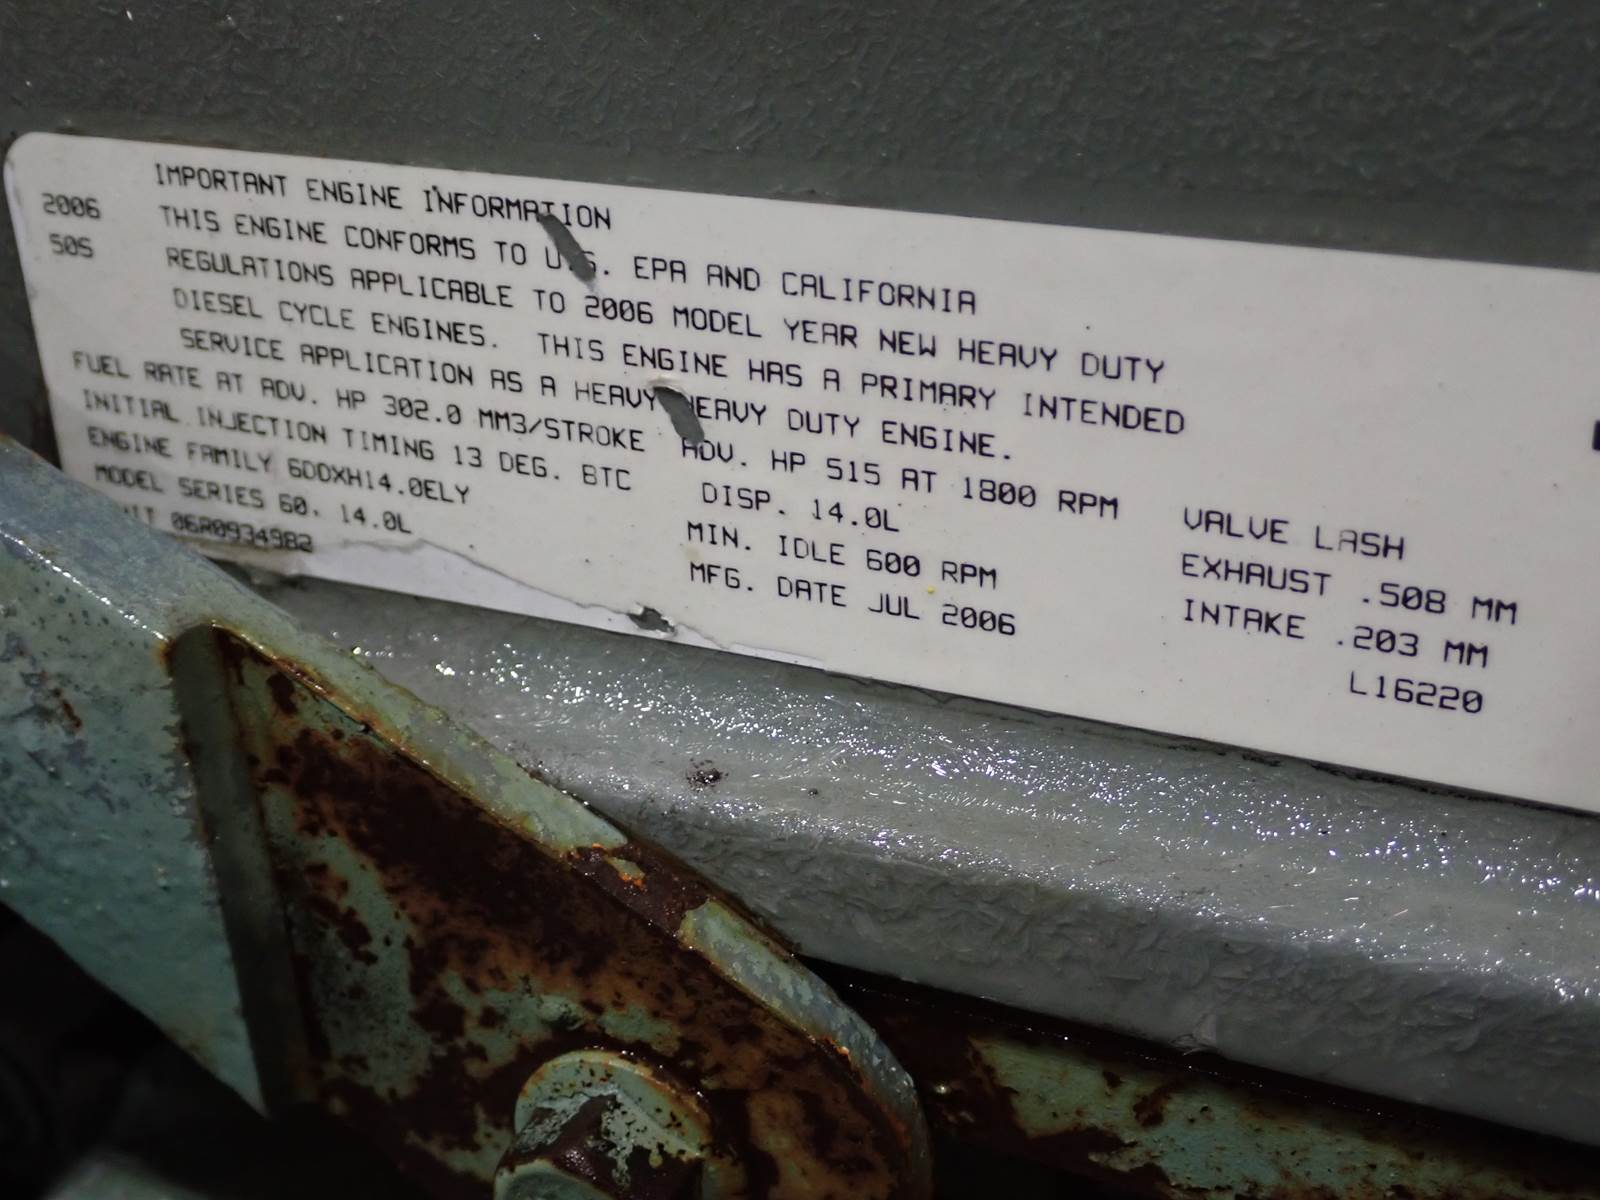 IMPORTANT ENGINE INFORMATION
2006 THIS ENGINE CONFORMS TO U.S. EPA AND CALIFORNIA
50S REGULATIONS APPLICABLE TO 2006 MODEL YEAR NEW HEAVY DUTY
DIESEL CYCLE ENGINES. THIS ENGINE HAS A PRIMARY INTENDED
SERVICE APPLICATION AS A HEAVY HEAVY DUTY ENGINE.
FUEL RATE AT ADV. HP 302.0 MM3/STROKE ADV. HP 515 AT 1800 RPM VALVE LASH
INITIAL INJECTION TIMING 13 DEG. BTC DISP. 14.0L EXHAUST .508 MM
ENGINE FAMILY 6DDXH14.0ELY MIN. IDLE 600 RPM INTAKE .203 MM
MODEL SERIES 60, 14.0L MFG. DATE JUL 2006 L16220
06R0934982